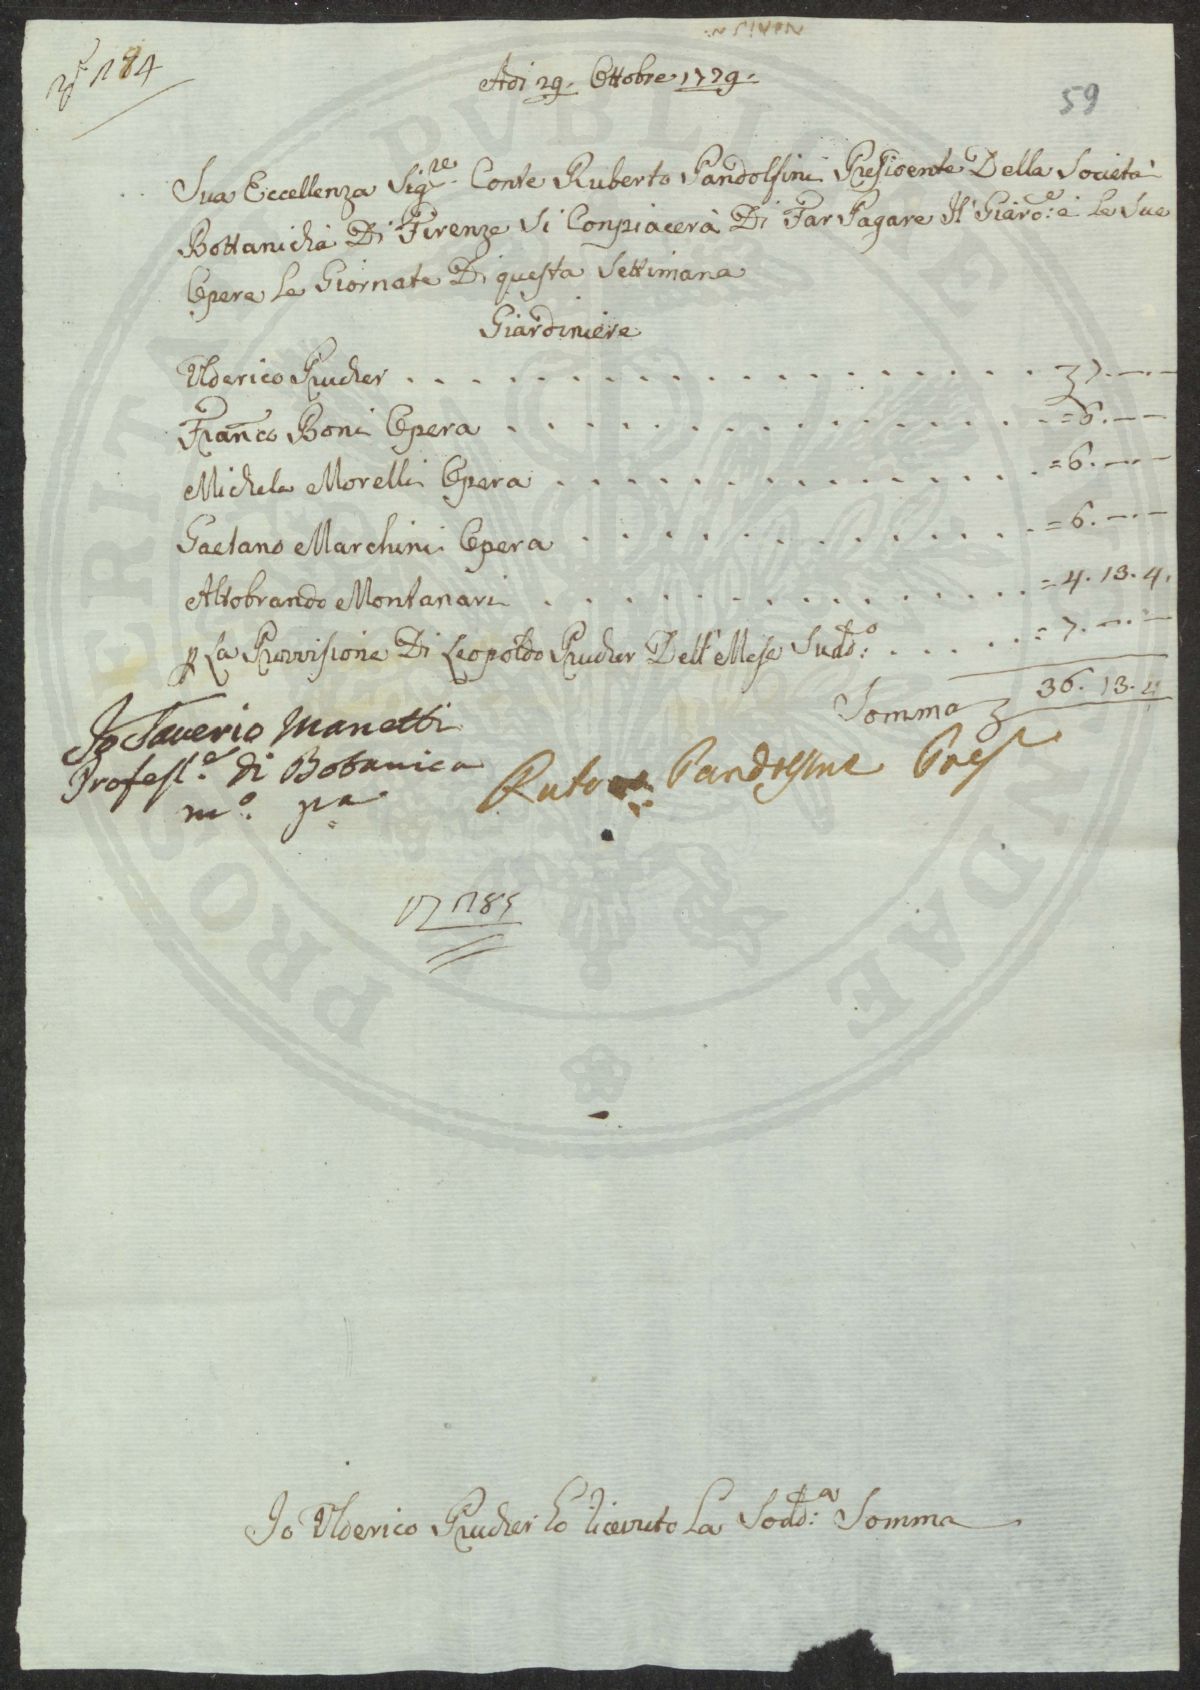 184
59
Adi 29. Ottobre 1779.
Sua Eccellenza Sig.re Conte Ruberto Pandolfini Presidente Della Società
Bottanicha Di Firenze Si Conpiacerà Di Far Pagare Il Giard.e e le Sue
Opere le Giornate Di questa Settimana
Giardiniere
Ulderico Prucher . . . . . . . . . . . . . . . . . . . . 7.—.—
Fran.co Boni Opera . . . . . . . . . . . . . . . . = 6.—.—
Michele Morelli Opera . . . . . . . . . . . . . . . = 6.—.—
Gaetano Marchini Opera . . . . . . . . . . . . . = 6.—.—
Altobrando Montanari . . . . . . . . . . . . . . . = 4. 13. 4.
p La Provvisione Di Leopoldo Prucher Dell' Mese Sudd.o . . . . . = 7.—.—
Somma 36. 13. 4
Io Saverio Manetti
Profess.e di Botanica
m.o pa
Pandolfini Pres
1785
Io Ulderico Prucher ho ricevuto la Sodd.a Somma
PROSPERITATI PUBLICAE